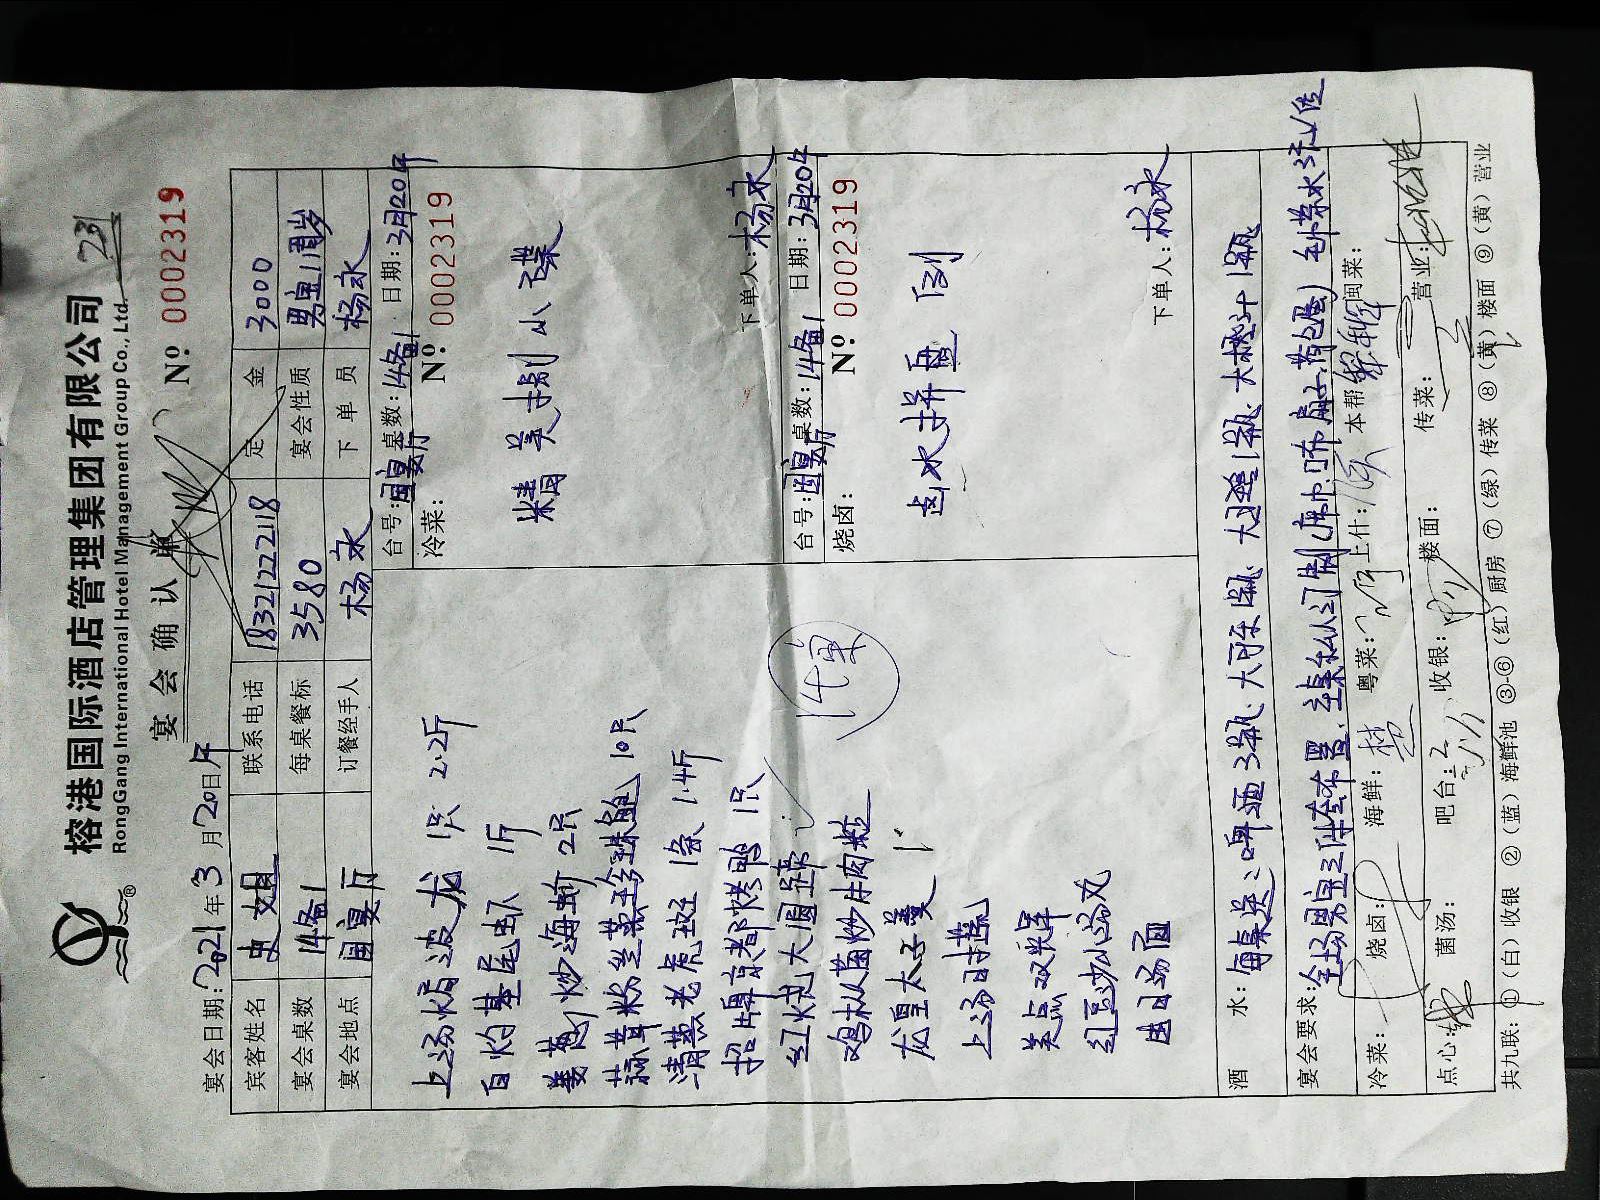 榕港国际酒店管理集团有限公司
RongGang International Hotel Management Group Co., Ltd.
宴会确认单
№: 00002319
宴会日期: 2021年3月20日午
宾客姓名 史姐 联系电话 18321222118 定金 3000
宴会桌数 14备1 每桌餐标 3580 宴会性质 男宝1周岁
宴会地点 国宴厅 订餐经手人 杨永 下单员 杨永
上汤焗波龙 1只 2.2斤
白灼基尾虾 1斤
姜葱炒海蟹 2只
蒜茸粉丝蒸珍珠鲍 10只
清蒸老虎斑 1条 1.4斤
招牌京都烤鸭 1只
红烧大圆蹄
鸡枞菌炒牛肉粒
龙皇太子羹
上汤时蔬
美点双辉
红豆沙小汤丸
日汤面
14桌
台号: 国宴厅 桌数: 14备1 日期: 3月20午
冷菜: № 00002319
精美捌小碟
下单人: 杨永
台号: 国宴厅 桌数: 14备1 日期: 3月20午
烧卤: № 00002319
卤水拼盘 例
下单人: 杨永
酒水: 每桌送: 啤酒3瓶.大可乐1瓶 大雪碧1瓶.大橙汁1瓶
宴会要求: 全场男宝主体布置.主桌私人订制(席巾
冷菜: 烧卤: 海鲜: 粤菜: 上什: 本帮: 闽菜:
点心: 菌汤: 吧台: 收银: 楼面: 传菜: 营业:
共九联: ①(白)收银 ②(蓝)海鲜池 ③-⑥(红)厨房 ⑦(绿)传菜 ⑧(黄)楼面 ⑨(黄)营业